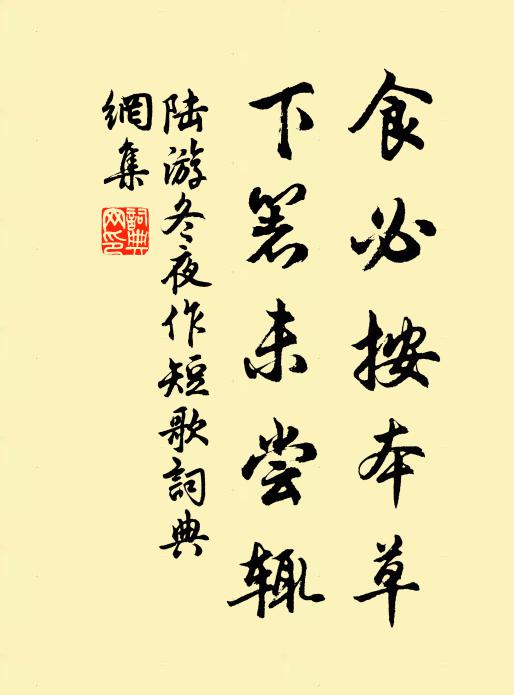 食必按本草
下箸未尝辄
陆游冬夜作短歌詞典
網集
詞典
网印